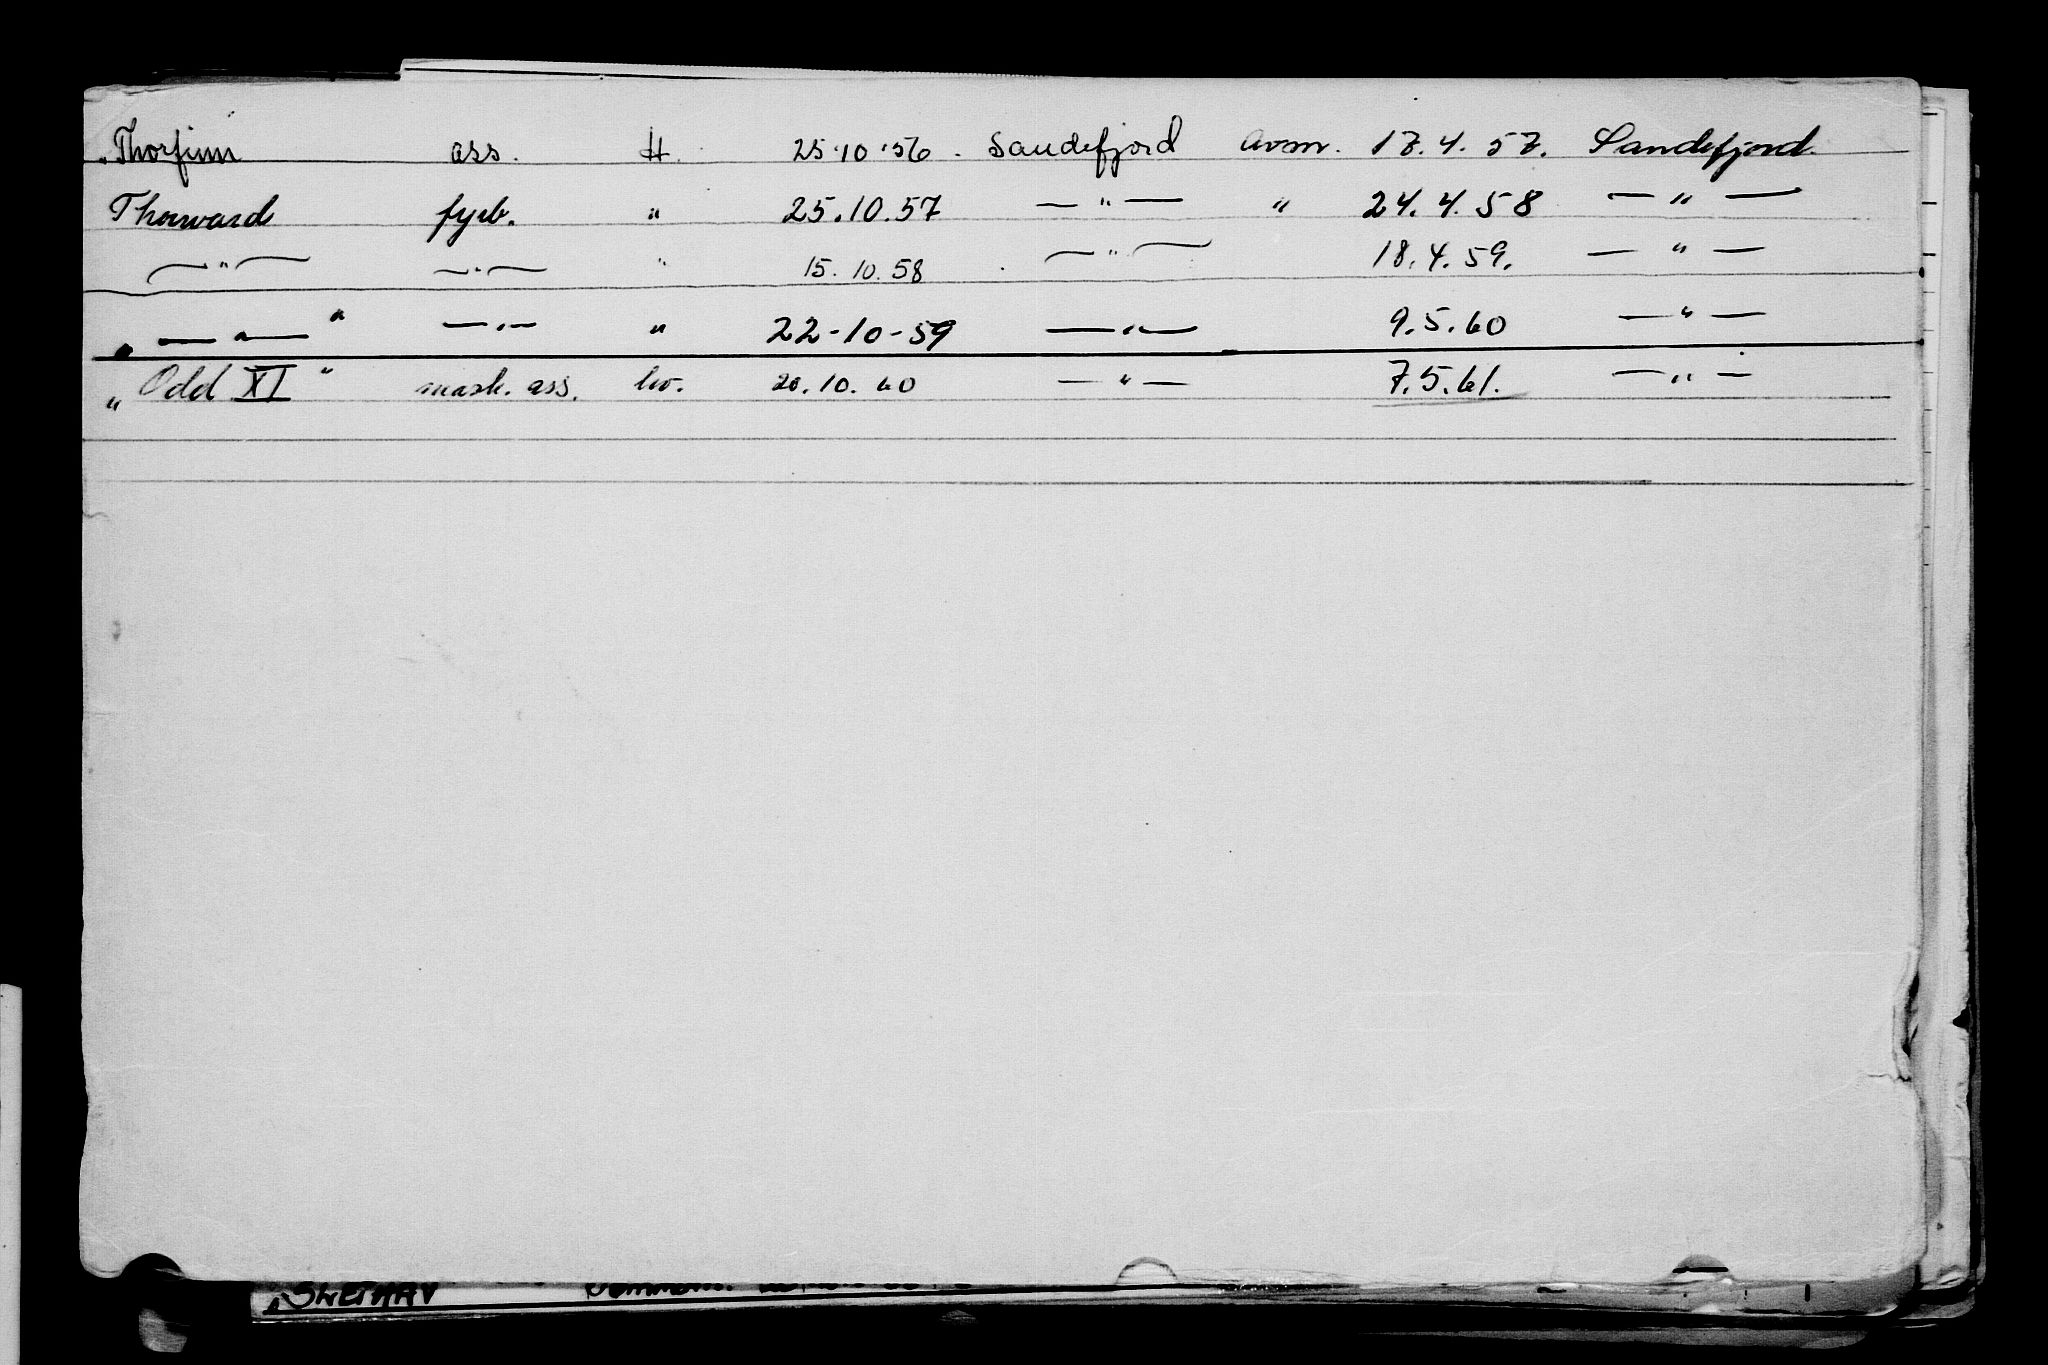 "Thorfinn ass. H. 25.10.'56. Sandefjord avm. 17.4.57. Sandefjord.
Thorvard fyrb. " 25.10.57 — " — " 24.4.58 — " —
— " — — " — " 15.10.58 — " — 18.4.59. — " —
" — " — " — " — " 22-10-59 — " — 9.5.60 — " —
"Odd XI" mask. ass. hv. 20.10.60 — " — 7.5.61. — " —